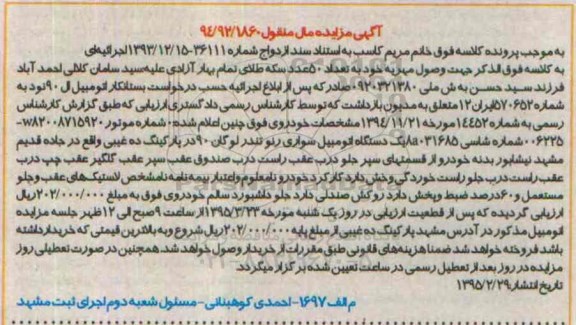 آگهی مزایده مال منقول ۹۴/۹۲/۱۸۶۰
به موجب پرونده کلاسه فوق خانم مریم کاسب به استناد سند ازدواج شماره ۳۶۱۱۱-۱۳۹۳/۱۲/۱۵ اجرائیه‌ای
به کلاسه فوق الذکر جهت وصول مهریه خود به تعداد ۵۰ عدد سکه طلای تمام بهار آزادی علیه سید سامان کلالی احمد آباد
فرزند سید حسن به ش ملی ۰۹۲۰۳۲۱۳۸۰ صادر که پس از ابلاغ اجرائیه حسب درخواست بستانکار اتومبیل ال ۹۰ نود به
شماره ۵۷۰۶۵۲ ایران ۱۲ متعلق به مدیون بازداشت که توسط کارشناس رسمی دادگستری ارزیابی که طبق گزارش کارشناس
رسمی به شماره ۱۴۴۵۲ مورخه ۱۳۹۴/۱۱/۲۱ مشخصات خودروی فوق چنین اعلام شده: شماره موتور w۸۲۰۰۸۷۱۵۹۲۰-
۰۰۶۲۲۵ شماره شاسی ۸a۰۳۱۶۸۵ یک دستگاه اتومبیل سواری رنو تندر لوگان ۹۰ در پارکینگ ده غیبی واقع در جاده قدیم
مشهد نیشابور بدنه خودرو از قسمتهای سپر جلو درب عقب راست درب صندوق عقب سپر عقب گلگیر عقب چپ درب
عقب راست درب جلو راست خوردگی و خش دارد کارکرد خودرو نامعلوم و اعتبار بیمه نامه نامشخص لاستیک‌های عقب و جلو
مستعمل و ۶۰ درصد ضبط و پخش دارد روکش صندلی دارد جلو داشبورد سالم خودروی فوق به مبلغ ۲۰۲/۰۰۰/۰۰۰ ریال
ارزیابی گردیده که پس از قطعیت ارزیابی در روز یک شنبه مورخه ۱۳۹۵/۳/۲۳ از ساعت ۹ صبح الی ۱۲ ظهر جلسه مزایده
اتومبیل مذکور در آدرس مشهد پارکینگ ده غیبی از مبلغ پایه ۲۰۲/۰۰۰/۰۰۰ ریال شروع و به بالاترین قیمتی که خریدار داشته
باشد فروخته خواهد شد ضمنا هزینه‌های قانونی طبق مقررات از خریدار وصول خواهد شد. همچنین در صورت تعطیلی روز
مزایده در روز بعد از تعطیل رسمی در ساعت تعیین شده برگزار میگردد.
تاریخ انتشار: ۱۳۹۵/۲/۲۹
م الف ۱۶۹۷- احمدی کوهبنانی - مسئول شعبه دوم اجرای ثبت مشهد